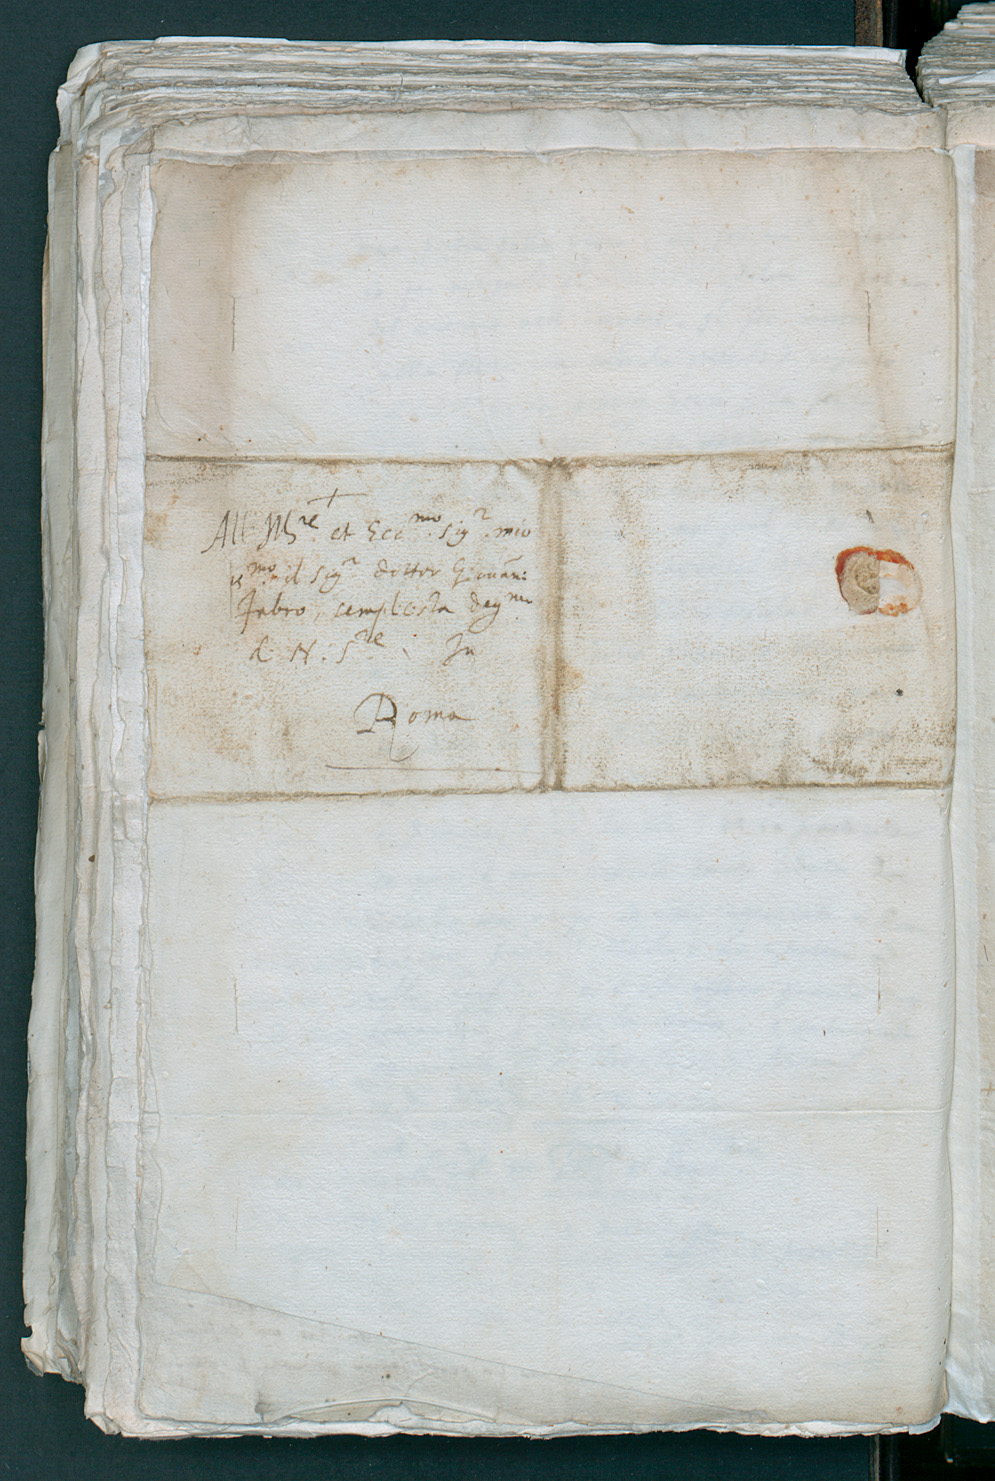 All Ill.re et Ecc.mo Sig.r mio
il Sig.r dottor Giouañ:
Fabro, semplicista deg.mo
di N. S.re . In
Roma